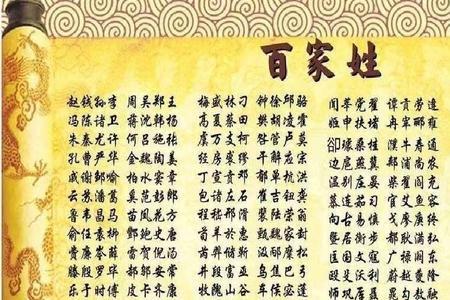 百家姓
赵钱孙李 周吴郑王 梅盛林刁 钟徐邱骆 闻莘党翟 谭贡劳逄
冯陈褚卫 蒋沈韩杨 高夏蔡田 樊胡凌霍 姬申扶堵 冉宰郦雍
朱秦尤许 何吕施张 虞万支柯 昝管卢莫 郤璩桑桂 濮牛寿通
孔曹严华 金魏陶姜 经房裘缪 干解应宗 边扈燕冀 郏浦尚农
戚谢邹喻 柏水窦章 丁宣贲邓 郁单杭洪 温别庄晏 柴瞿阎充
云苏潘葛 奚范彭郎 包诸左石 崔吉钮龚 慕连茹习 宦艾鱼容
鲁韦昌马 苗凤花方 程嵇邢滑 裴陆荣翁 向古易慎 戈廖庾终
俞任袁柳 酆鲍史唐 荀羊惠 甄曲家封 暨居衡步 都耿满弘
费廉岑薛 雷贺倪汤 芮羿储靳 汲邴糜松 匡国文寇 广禄阙东
滕殷罗毕 郝邬安常 井段富巫 乌焦巴弓 殳沃利 蔚越夔隆
乐于时傅 皮卞齐康 牧隗山谷 车侯宓蓬 师巩厍聂 晁勾敖融